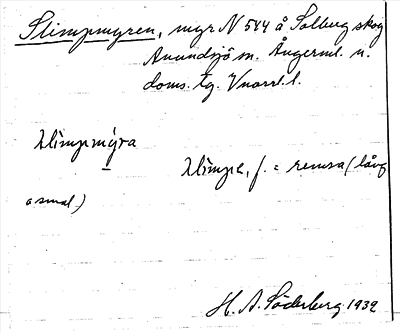 Slimpmyren, myr N 544 å Solberg skog
Anundsjö sn. Ångerml. n.
doms. tg. Vnorrl. l.
slimpmýra
slimpe, f. = remsa (lång
o smal.)
H. A. Söderberg 1932